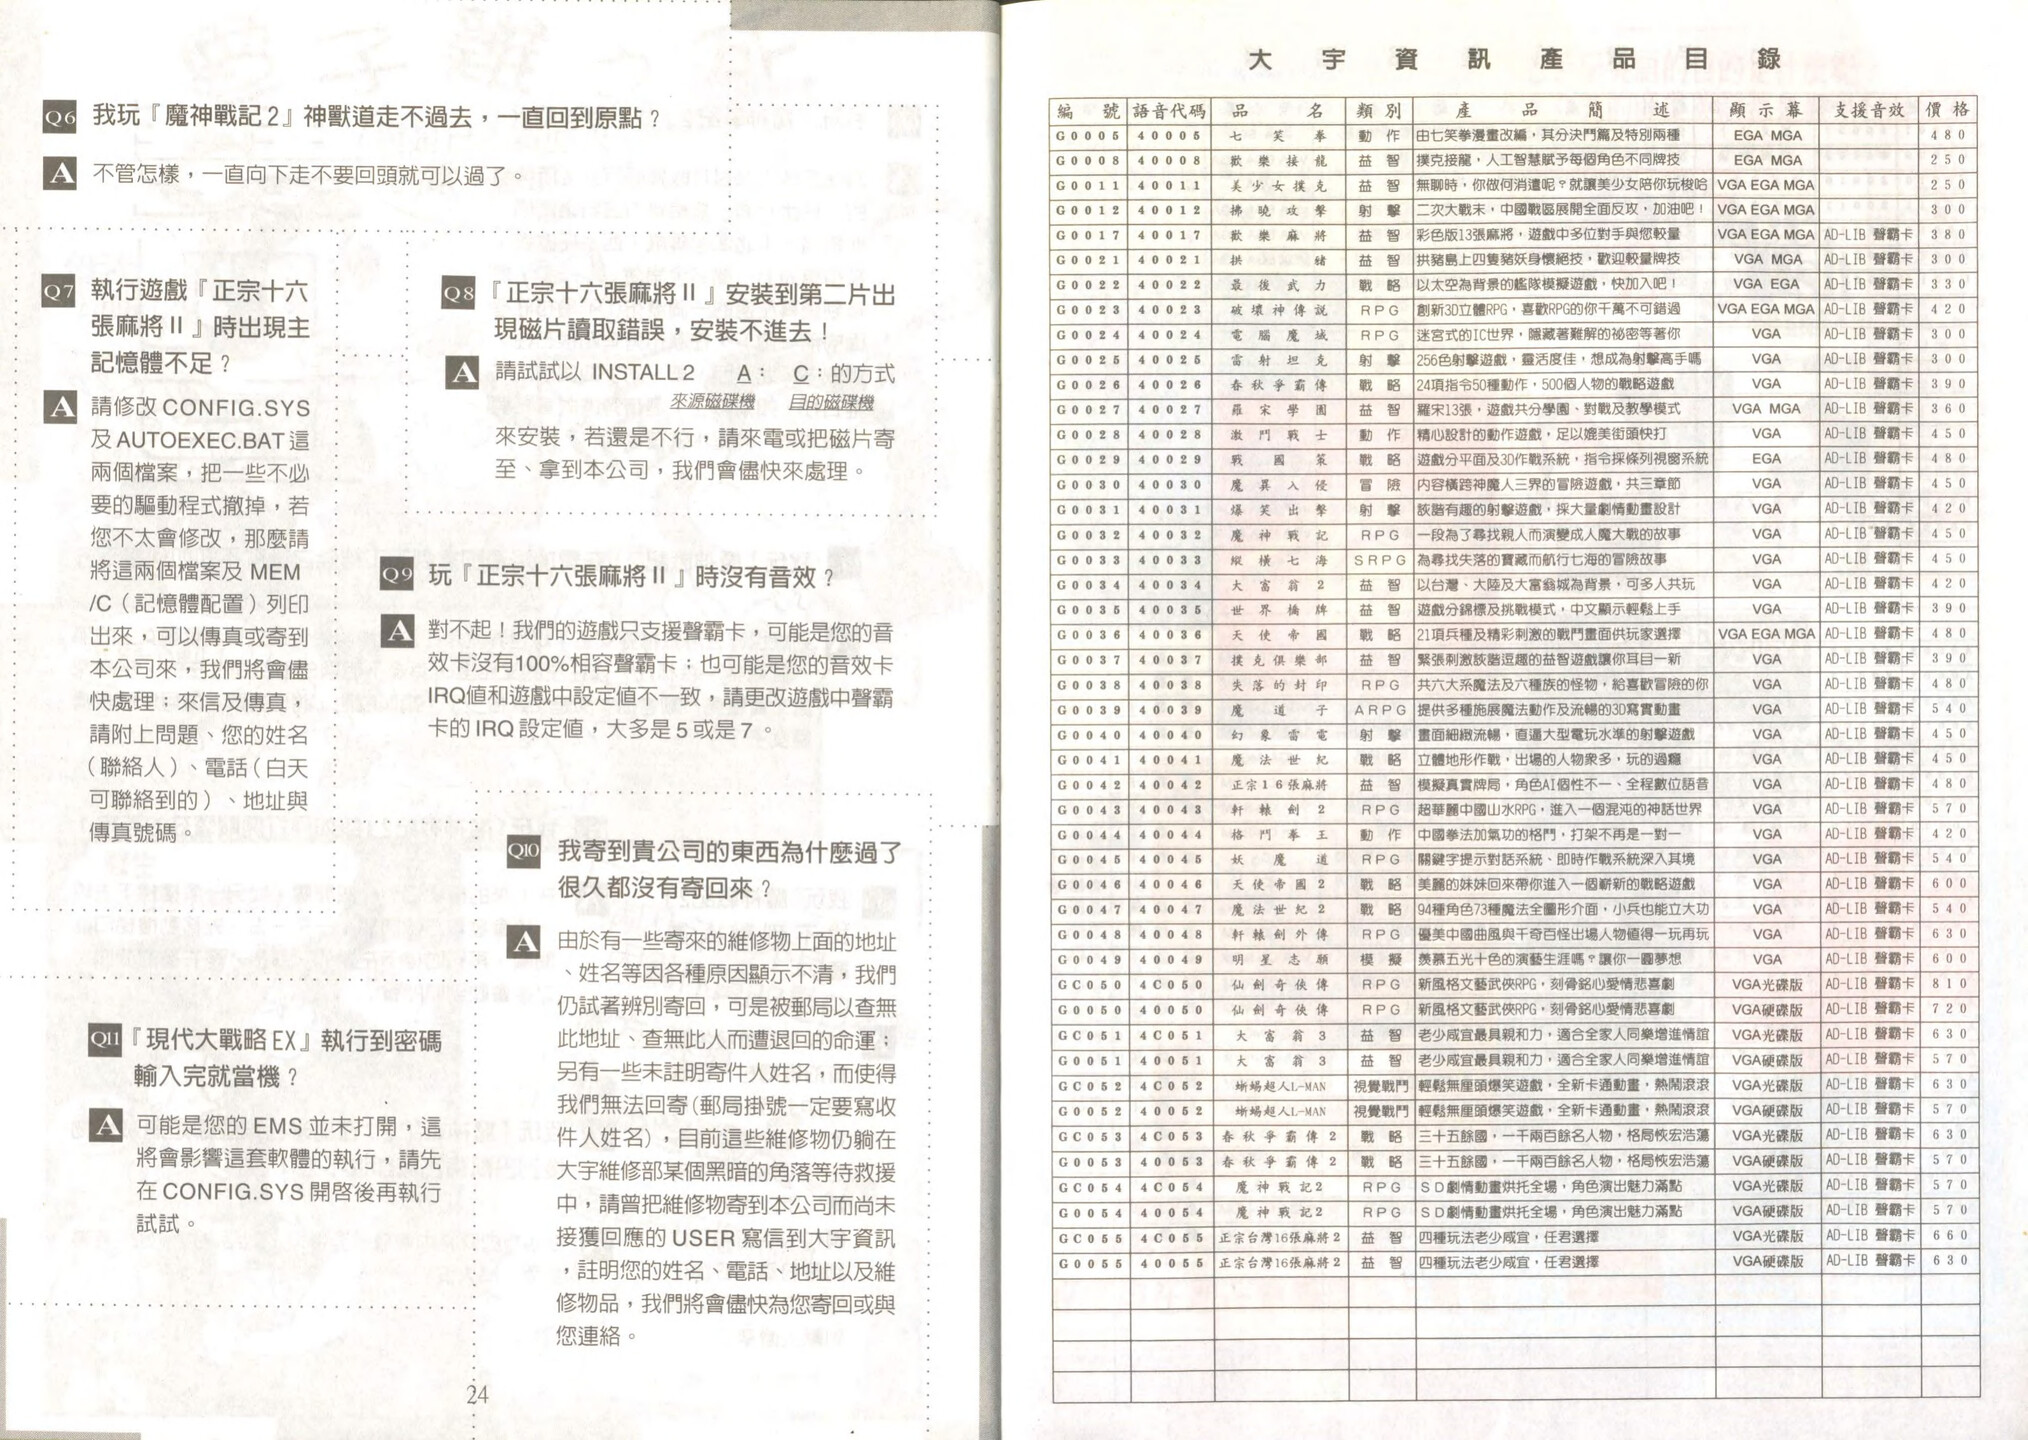 Q6 我玩『魔神戰記2』神獸道走不過去，一直回到原點？
A 不管怎樣，一直向下走不要回頭就可以過了。
Q7 執行遊戲『正宗十六
張麻將II』時出現主
記憶體不足？
A 請修改CONFIG.SYS
及AUTOEXEC.BAT這
兩個檔案，把一些不必
要的驅動程式撤掉，若
您不太會修改，那麼請
將這兩個檔案及 MEM
/C（記憶體配置）列印
出來，可以傳真或寄到
本公司來，我們將會儘
快處理；來信及傳真，
請附上問題、您的姓名
（聯絡人）、電話（白天
可聯絡到的）、地址與
傳真號碼。
Q8 『正宗十六張麻將II』安裝到第二片出
現磁片讀取錯誤，安裝不進去！
A 請試試以 INSTALL2 A： C：的方式
來源磁碟機 目的磁碟機
來安裝，若還是不行，請來電或把磁片寄
至、拿到本公司，我們會儘快來處理。
Q9 玩『正宗十六張麻將II』時沒有音效？
A 對不起！我們的遊戲只支援聲霸卡，可能是您的音
效卡沒有100%相容聲霸卡；也可能是您的音效卡
IRQ值和遊戲中設定值不一致，請更改遊戲中聲霸
卡的IRQ設定值，大多是5或是7。
Q10 我寄到貴公司的東西為什麼過了
很久都沒有寄回來？
A 由於有一些寄來的維修物上面的地址
、姓名等因各種原因顯示不清，我們
仍試著辨別寄回，可是被郵局以查無
此地址、查無此人而遭退回的命運；
另有一些未註明寄件人姓名，而使得
我們無法回寄(郵局掛號一定要寫收
件人姓名)，目前這些維修物仍躺在
大宇維修部某個黑暗的角落等待救援
中，請曾把維修物寄到本公司而尚未
接獲回應的USER寫信到大宇資訊
，註明您的姓名、電話、地址以及維
修物品，我們將會儘快為您寄回或與
您連絡。
Q11 『現代大戰略EX』執行到密碼
輸入完就當機？
A 可能是您的EMS並未打開，這
將會影響這套軟體的執行，請先
在CONFIG.SYS開啓後再執行
試試。
24
大宇資訊產品目錄
編號 語音代碼 品名 類別 產品簡述 顯示幕 支援音效 價格
G0005 40005 七笑拳 動作 由七笑拳漫畫改編，其分決鬥篇及特別兩種 EGA MGA 480
G0008 40008 歡樂接龍 益智 撲克接龍，人工智慧賦予每個角色不同牌技 EGA MGA 250
G0011 40011 美少女撲克 益智 無聊時，你做何消遣呢？就讓美少女陪你玩梭哈 VGA EGA MGA 250
G0012 40012 拂曉攻擊 射擊 二次大戰末，中國戰區展開全面反攻，加油吧！ VGA EGA MGA 300
G0017 40017 歡樂麻將 益智 彩色版13張麻將，遊戲中多位對手與您較量 VGA EGA MGA AD-LIB 聲霸卡 380
G0021 40021 拱豬 益智 拱豬島上四隻豬妖身懷絕技，歡迎較量牌技 VGA MGA AD-LIB 聲霸卡 300
G0022 40022 最後武力 戰略 以太空為背景的艦隊模擬遊戲，快加入吧！ VGA EGA AD-LIB 聲霸卡 330
G0023 40023 破壞神傳說 RPG 創新3D立體RPG，喜歡RPG的你千萬不可錯過 VGA EGA MGA AD-LIB 聲霸卡 420
G0024 40024 電腦魔域 RPG 迷宮式的IC世界，隱藏著難解的祕密等著你 VGA AD-LIB 聲霸卡 300
G0025 40025 雷射坦克 射擊 256色射擊遊戲，靈活度佳，想成為射擊高手嗎 VGA AD-LIB 聲霸卡 300
G0026 40026 春秋爭霸傳 戰略 24項指令50種動作，500個人物的戰略遊戲 VGA AD-LIB 聲霸卡 390
G0027 40027 羅宋學園 益智 羅宋13張，遊戲共分學園、對戰及教學模式 VGA MGA AD-LIB 聲霸卡 360
G0028 40028 激鬥戰士 動作 精心設計的動作遊戲，足以媲美街頭快打 VGA AD-LIB 聲霸卡 450
G0029 40029 戰國策 戰略 遊戲分平面及3D作戰系統，指令採條列視窗系統 EGA AD-LIB 聲霸卡 480
G0030 40030 魔異入侵 冒險 內容橫跨神魔人三界的冒險遊戲，共三章節 VGA AD-LIB 聲霸卡 450
G0031 40031 爆笑出擊 射擊 詼諧有趣的射擊遊戲，採大量劇情動畫設計 VGA AD-LIB 聲霸卡 420
G0032 40032 魔神戰記 RPG 一段為了尋找親人而演變成人魔大戰的故事 VGA AD-LIB 聲霸卡 450
G0033 40033 縱橫七海 SRPG 為尋找失落的寶藏而航行七海的冒險故事 VGA AD-LIB 聲霸卡 450
G0034 40034 大富翁2 益智 以台灣、大陸及大富翁城為背景，可多人共玩 VGA AD-LIB 聲霸卡 420
G0035 40035 世界橋牌 益智 遊戲分錦標及挑戰模式，中文顯示輕鬆上手 VGA AD-LIB 聲霸卡 390
G0036 40036 天使帝國 戰略 21項兵種及精彩刺激的戰鬥畫面供玩家選擇 VGA EGA MGA AD-LIB 聲霸卡 480
G0037 40037 撲克俱樂部 益智 緊張刺激詼諧逗趣的益智遊戲讓你耳目一新 VGA AD-LIB 聲霸卡 390
G0038 40038 失落的封印 RPG 共六大系魔法及六種族的怪物，給喜歡冒險的你 VGA AD-LIB 聲霸卡 480
G0039 40039 魔道子 ARPG 提供多種施展魔法動作及流暢的3D寫實動畫 VGA AD-LIB 聲霸卡 540
G0040 40040 幻象雷電 射擊 畫面細緻流暢，直逼大型電玩水準的射擊遊戲 VGA AD-LIB 聲霸卡 450
G0041 40041 魔法世紀 戰略 立體地形作戰，出場的人物眾多，玩的過癮 VGA AD-LIB 聲霸卡 450
G0042 40042 正宗16張麻將 益智 模擬真實牌局，角色AI個性不一、全程數位語音 VGA AD-LIB 聲霸卡 480
G0043 40043 軒轅劍2 RPG 超華麗中國山水RPG，進入一個混沌的神話世界 VGA AD-LIB 聲霸卡 570
G0044 40044 格鬥拳王 動作 中國拳法加氣功的格鬥，打架不再是一對一 VGA AD-LIB 聲霸卡 420
G0045 40045 妖魔道 RPG 關鍵字提示對話系統、即時作戰系統深入其境 VGA AD-LIB 聲霸卡 540
G0046 40046 天使帝國2 戰略 美麗的妹妹回來帶你進入一個嶄新的戰略遊戲 VGA AD-LIB 聲霸卡 600
G0047 40047 魔法世紀2 戰略 94種角色73種魔法全圖形介面，小兵也能立大功 VGA AD-LIB 聲霸卡 540
G0048 40048 軒轅劍外傳 RPG 優美中國曲風與千奇百怪出場人物值得一玩再玩 VGA AD-LIB 聲霸卡 630
G0049 40049 明星志願 模擬 羨慕五光十色的演藝生涯嗎？讓你一圓夢想 VGA AD-LIB 聲霸卡 600
GC050 4C050 仙劍奇俠傳 RPG 新風格文藝武俠RPG，刻骨銘心愛情悲喜劇 VGA光碟版 AD-LIB 聲霸卡 810
G0050 40050 仙劍奇俠傳 RPG 新風格文藝武俠RPG，刻骨銘心愛情悲喜劇 VGA硬碟版 AD-LIB 聲霸卡 720
GC051 4C051 大富翁3 益智 老少咸宜最具親和力，適合全家人同樂增進情誼 VGA光碟版 AD-LIB 聲霸卡 630
G0051 40051 大富翁3 益智 老少咸宜最具親和力，適合全家人同樂增進情誼 VGA硬碟版 AD-LIB 聲霸卡 570
GC052 4C052 蜥蜴超人L-MAN 視覺戰鬥 輕鬆無厘頭爆笑遊戲，全新卡通動畫，熱鬧滾滾 VGA光碟版 AD-LIB 聲霸卡 630
G0052 40052 蜥蜴超人L-MAN 視覺戰鬥 輕鬆無厘頭爆笑遊戲，全新卡通動畫，熱鬧滾滾 VGA硬碟版 AD-LIB 聲霸卡 570
GC053 4C053 春秋爭霸傳2 戰略 三十五餘國，一千兩百餘名人物，格局恢宏浩蕩 VGA光碟版 AD-LIB 聲霸卡 630
G0053 40053 春秋爭霸傳2 戰略 三十五餘國，一千兩百餘名人物，格局恢宏浩蕩 VGA硬碟版 AD-LIB 聲霸卡 570
GC054 4C054 魔神戰記2 RPG SD劇情動畫烘托全場，角色演出魅力滿點 VGA光碟版 AD-LIB 聲霸卡 570
G0054 40054 魔神戰記2 RPG SD劇情動畫烘托全場，角色演出魅力滿點 VGA硬碟版 AD-LIB 聲霸卡 570
GC055 4C055 正宗台灣16張麻將2 益智 四種玩法老少咸宜，任君選擇 VGA光碟版 AD-LIB 聲霸卡 660
G0055 40055 正宗台灣16張麻將2 益智 四種玩法老少咸宜，任君選擇 VGA硬碟版 AD-LIB 聲霸卡 630